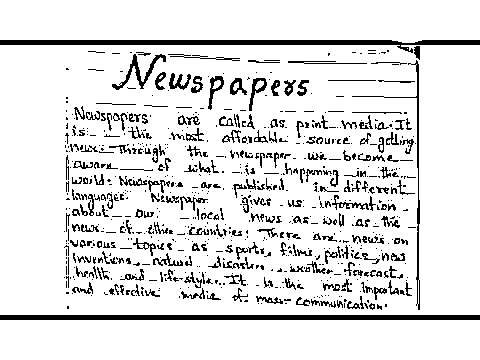 Newspapers
Newspapers are called as print media. It
is the most affordable source of getting
news. Through the newspaper we become
aware of what is happening in the
world. Newspapers are published in different
languages. Newspaper gives us information
about our local news as well as the
news of other countries. There are news on
various topics as sports, films, politics, new
inventions, natural disasters, weather forecast,
health and life-style. It is the most important
and effective media of mass-communication.